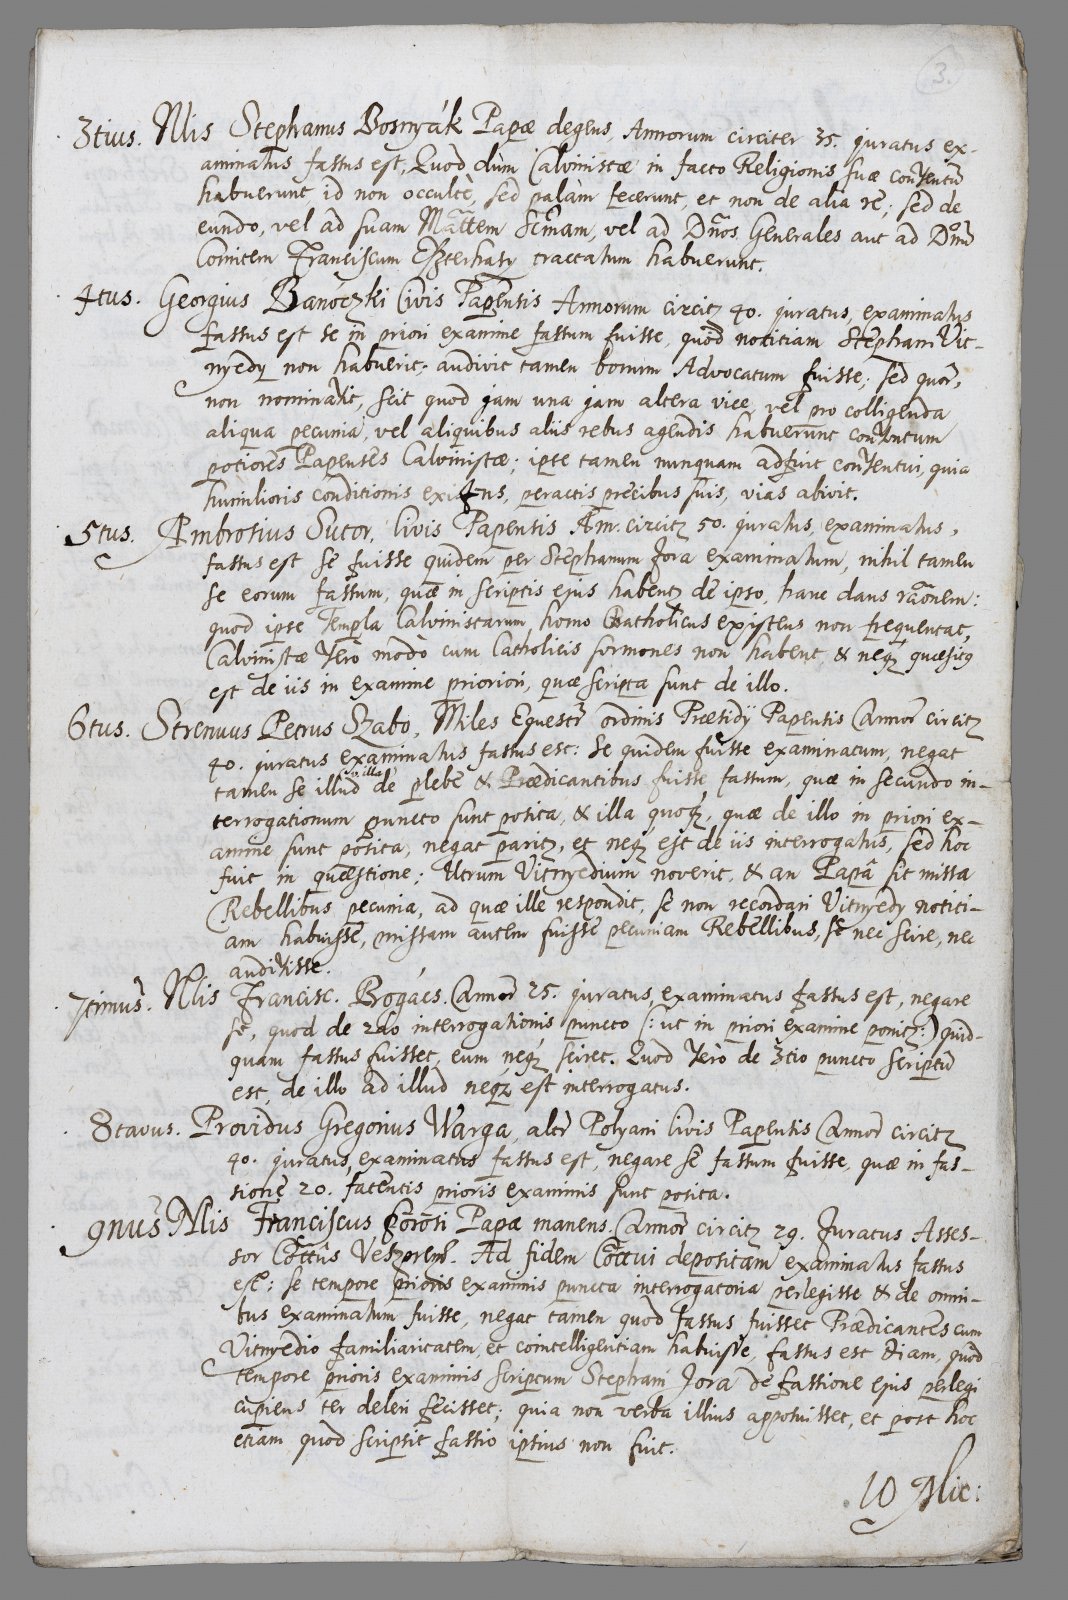 3.
3tius. Nlis Stephanus Bosnyák Papæ degens, Annorum circiter 35. juratus ex-
aminatus fassus est, Quod dum Calvinistæ in facto Religionis suæ conventū
habuerunt, id non occultè, sed palàm fecerunt, et non de alia re; sed de
eundo, vel ad suam Mattem Scmam, vel ad Dnos Generales aut ad Dnū
Comitem Franciscum Eszterhasy tractatum habuerunt.
4tus. Georgius Banóczki Civis Papensis Annorum circitz 40. juratus, examinatus
fassus est se in priori examine fassum fuisse, quod notitiam Stephani Vit-
nyedy non habuerit; audivit tamen bonum Advocatum fuisse; sed quor,
non nominavit, scit quod jam una jam altera vice, vel pro colligenda
aliqua pecunia, vel aliquibus aliis rebus agendis habuerunt conventum
potiores Papenses Calvinistæ; ipse tamen nunquam adfuit conventui, quia
humilioris conditionis existens, peractis precibus suis, vias abivit.
5tus. Ambrosius Sutor, Civis Papensis An. circitz 50. juratus, examinatus,
fassus est se fuisse quidem per Stephanum Jora examinatum, nihil tamen
se eorum fassum, quæ in scriptis ejus habentz de ipso, hanc dans raonem:
quod ipse Templa Calvinistarum homo Catholicus existens non frequentat,
Calvinistæ vero modò cum Catholicis sermones non habent, & neqz quæsitq
est de iis in examine prioriori, quæ scripta sunt de illo.
6tus. Strenuus Petrus Szabo, Miles Equestr ordinis Præsidy Papensis Annor circitz
40. juratus examinatus fassus est: Se quidem fuisse examinatum, negat
tamen se illud de plebe & Prædicantibus fuisse fassum, quæ in secundo in-
terrogationum puncto sunt posita, & illa quoqz, quæ de illo in priori ex-
amine sunt posita, negat paritz, et neqz est de iis interrogatus, sed hoc
fuit in quæstione; Utrum Vitnyedium noverit, & an Papâ sit missa
Rebellibus pecunia, ad quæ ille respondit, se non recordari Vitnyedy notiti-
am habuisse, missam autem fuisse pecuniam Rebellibus, se nec scire, nec
audivisse.
7timus. Nlis Francisc. Bogács. Annor 25. juratus, examinatus fassus est, negare
se, quod de 2do interrogationis puncto (: ut in priori examine ponitz :) quid-
quam fassus fuisset, eum neqz sciret. Quod vero de 3tio puncto scriptū
est, de illo ad illud neqz est interrogatus.
8tavus. Providus Gregorius Warga, altr Polyani Civis Papensis Annor circitz
40. juratus, examinatus fassus est, negare se fassum fuisse, quæ in fas-
sione 20. fatentis prioris examinis sunt posita.
9nus Nlis Franciscus Papæ manens. Annor circitz 29. Juratus Asses-
sor Cottus Veszprem. Ad fidem Cottui depositam examinatus fassus
est: se tempore prioris examinis puncta interrogatoria perlegisse & de omni-
bus examinatum fuisse, negat tamen quod fassus fuisset Prædicantes cum
Vitnyedio familiaritatem, et cointelligentiam habuisse, fassus est etiam, quod
tempore prioris examinis scriptum Stephani Jora de fassione ejus perlegi
cupiens ter deleri fecisset; quia non verba illius apposuisset, et post hoc
etiam quod scripsit fassio ipsius non fuit.
10 Nlis: